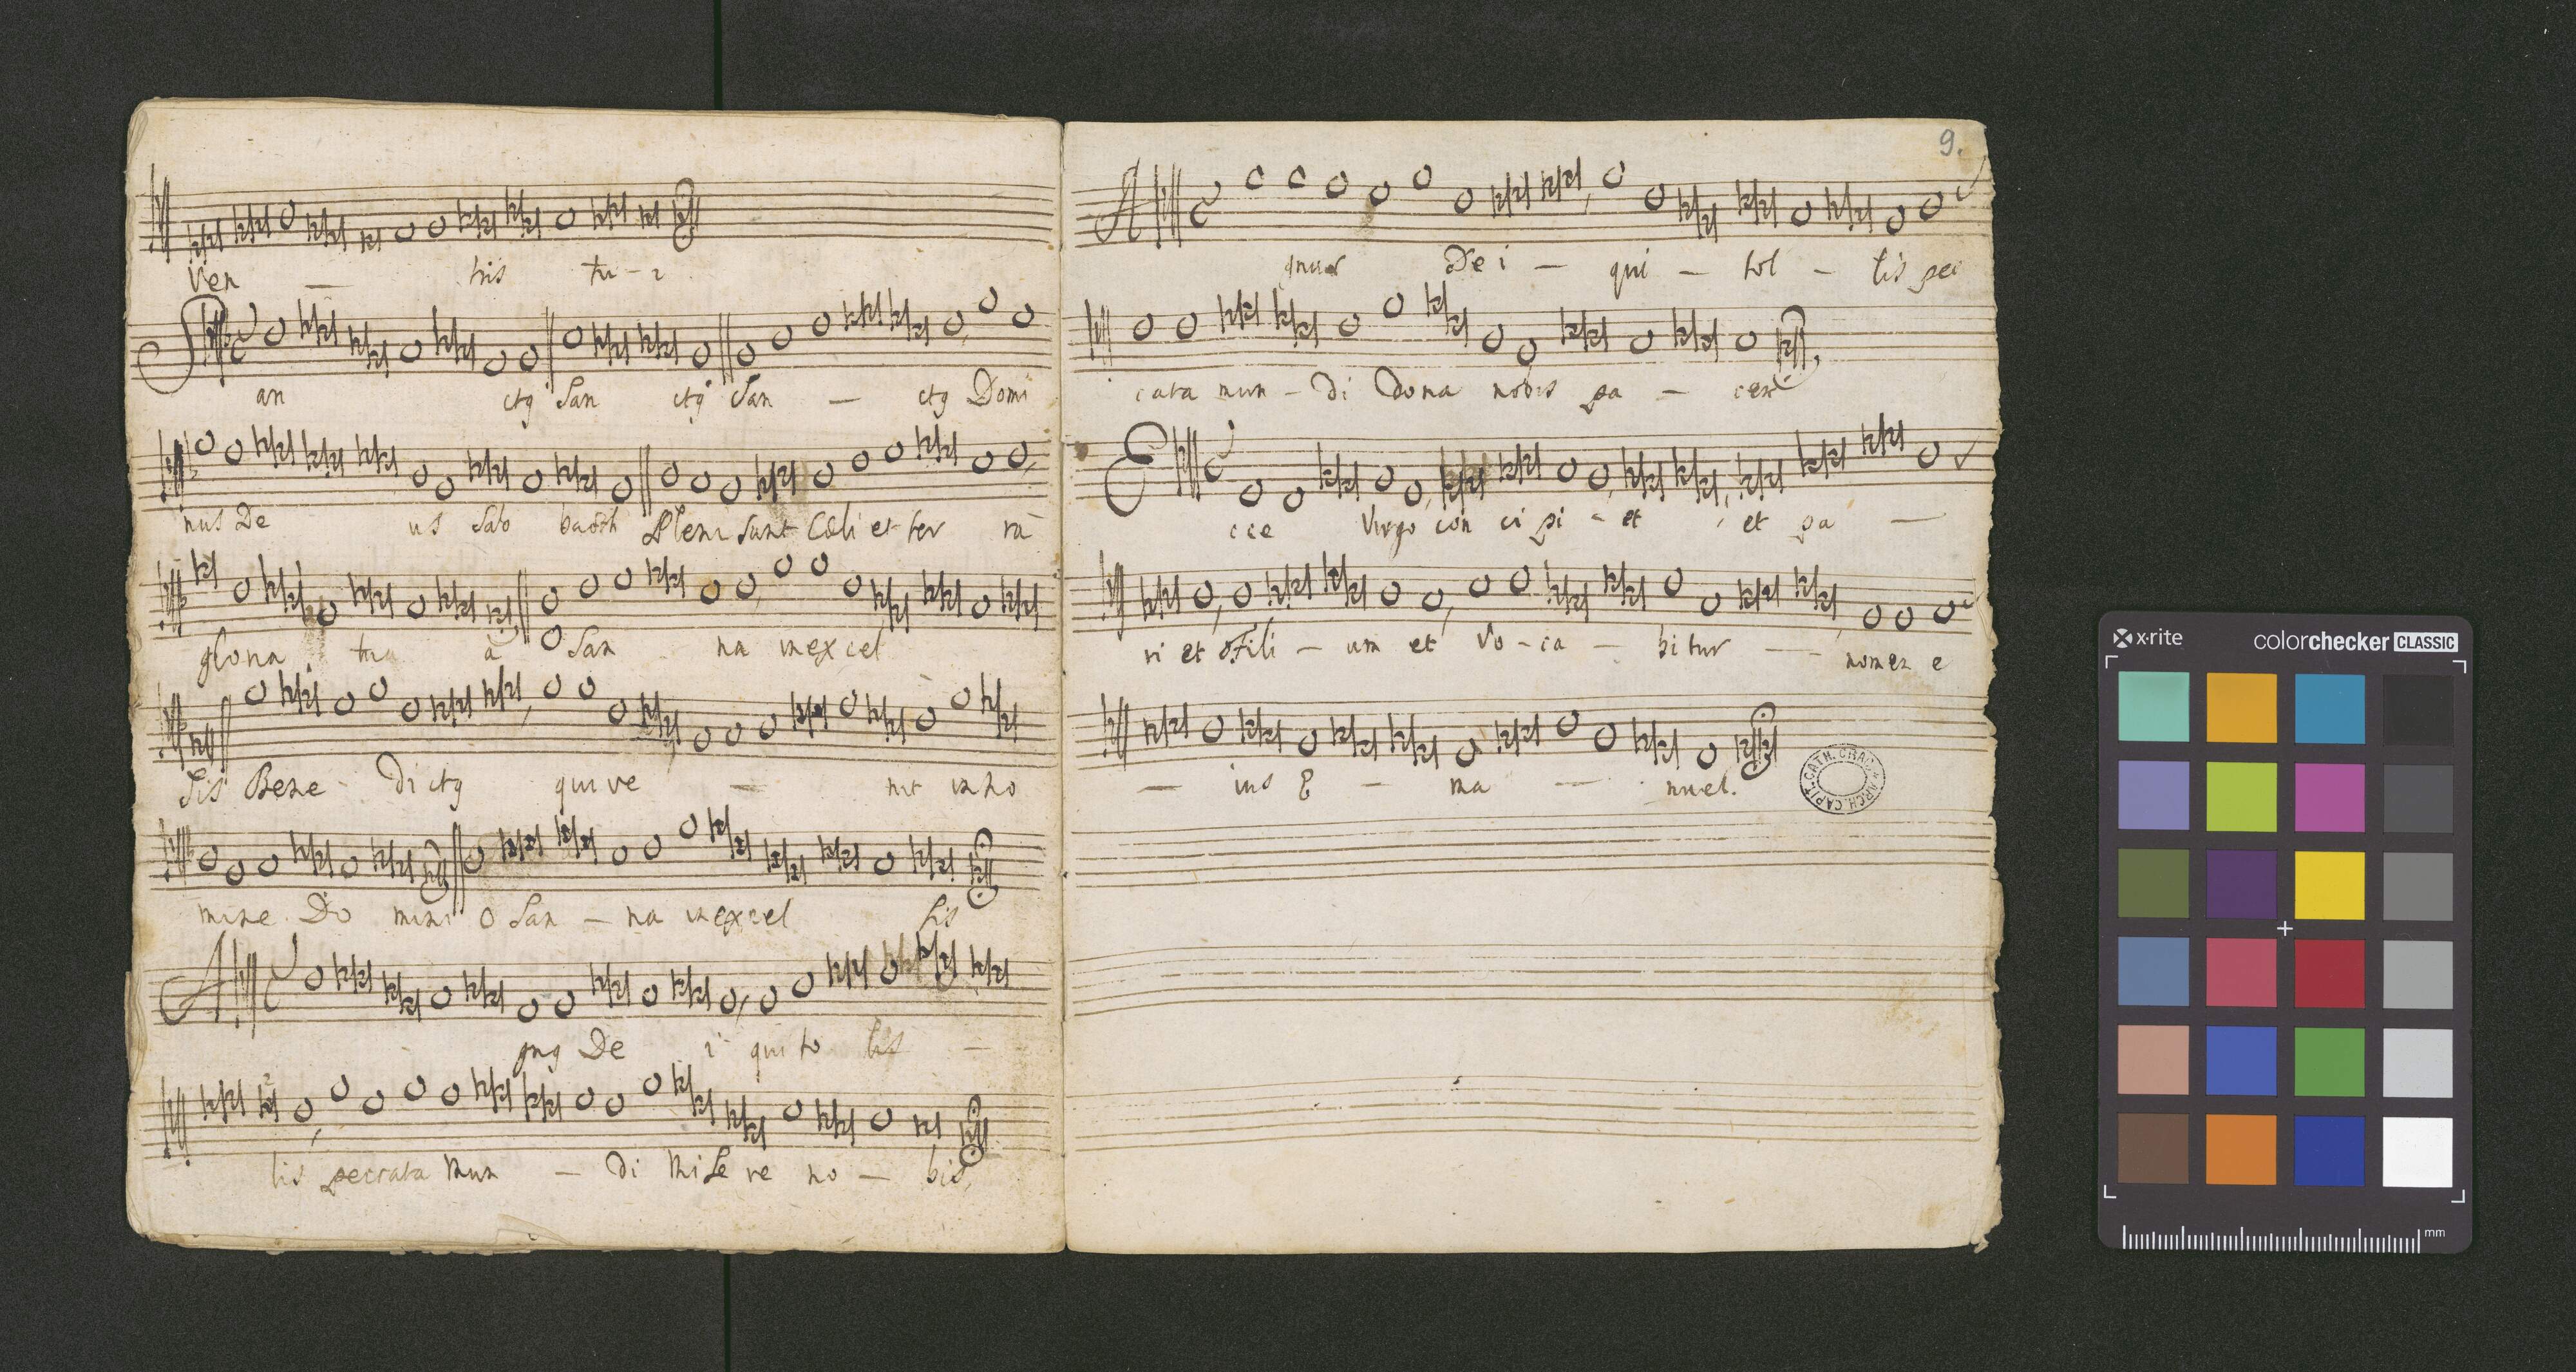 Ven — tris tu - i
San ctꝯ San ctꝯ San — ctꝯ Domi
nus De us Sab baoth Pleni sunt Cœli et ter ra
gloria tua a O San na in excel
sis Bene di ctꝯ qui ve — nit in no
mine Do mini O San — na in excel sis
A gnꝯ De i qui to lis —
lis peccata mun — di mise re no — bis,
9.
A gnus De i — qui — tol — lis pec
cata mun - di dona nobis pa — cem
E cce Virgo con ci pi - et et pa —
ri et Fili — um et vo - ca — bitur — nomen e
— ius E — ma — nuel.
CATH. CRAC. ARCH. CAPIT.
x·rite colorchecker CLASSIC
mm